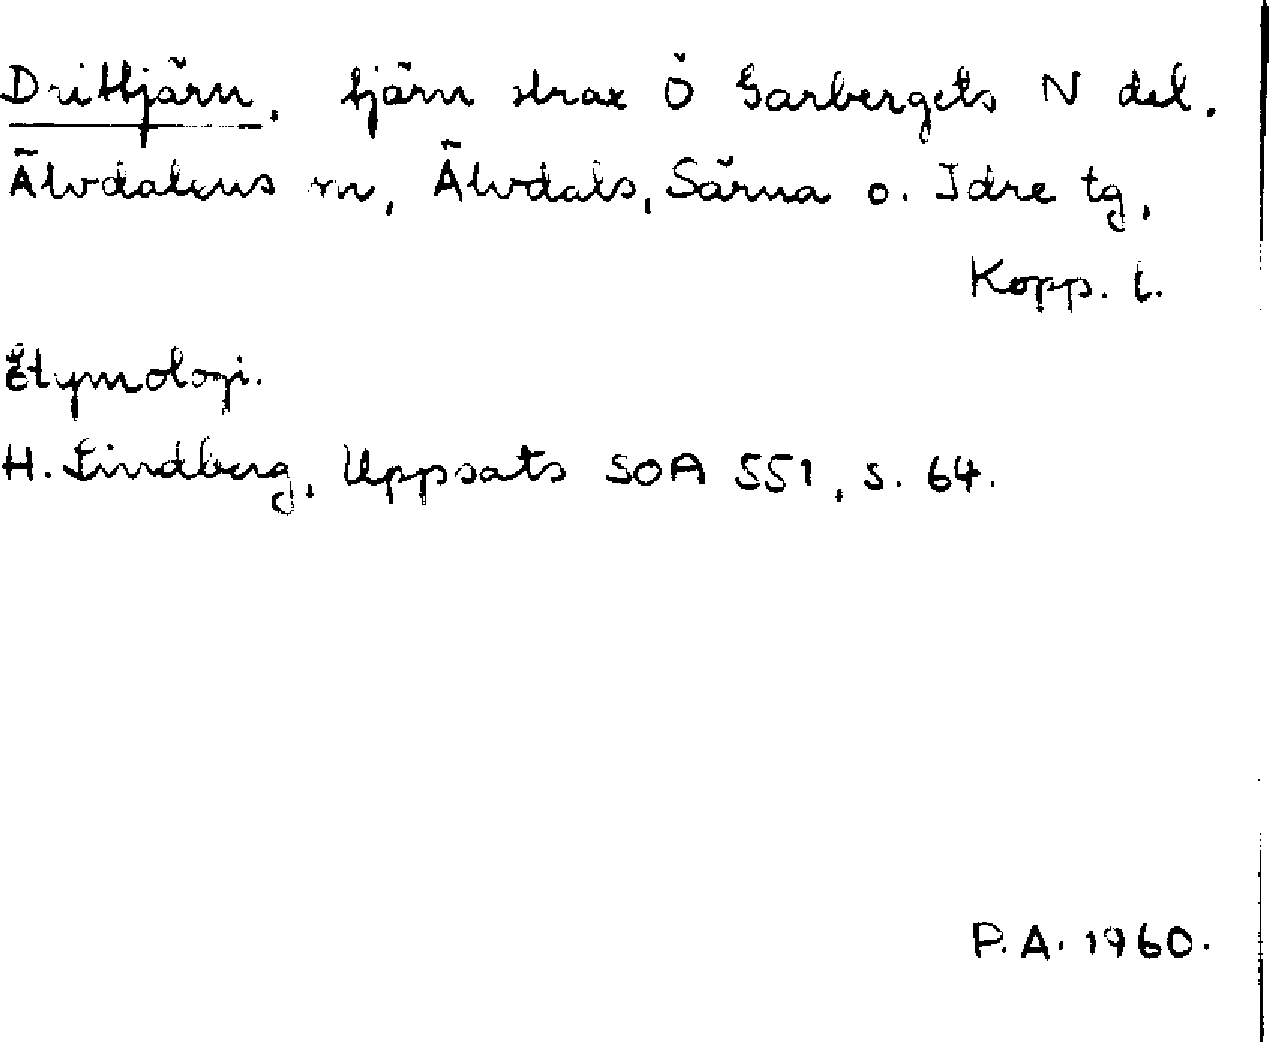 Drittjärn, tjärn strax Ö Garbergets N del.
Älvdalens sn, Älvdals, Särna o. Idre tg,
Kopp. l.
Etymologi.
H. Lindberg, Uppsats SOA 551, s. 64.
P.A. 1960.